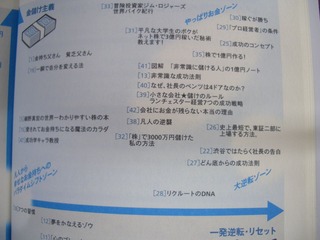 金儲け主義
[33] 冒険投資家ジム・ロジャーズ
世界バイク紀行
やっぱりお金ゾーン
稼ぐが勝ち
[31] 平凡な大学生のボクが
ネット株で3億円稼いだ秘術
教えます!
「プロ経営者」の条件
[25] 成功のコンセプト
[35] 株で1億円作る!
金持ち父さん 貧乏父さん
一瞬で自分を変える法
[41] 図解 「非常識に儲ける人」の1億円ノート
[13] 非常識な成功法則
[40] なぜ、社長のベンツは4ドアなのか?
[39] 小さな会社★儲けのルール
ランチェスター経営7つの成功戦略
[42] 会社にお金が残らない本当の理由
世界一わかりやすい株の本
[38] 凡人の逆襲
愛されてお金持ちになる魔法のカラダ
[32] 「株」で3000万円儲けた
私の方法
[26] 史上最短で、東証二部に
上場する方法。
[22] 渋谷ではたらく社長の告白
[27] どん底からの成功法則
大逆転ゾーン
[28] リクルートのDNA
7つの習慣
[12] 夢をかなえるゾウ
一発逆転・リセット